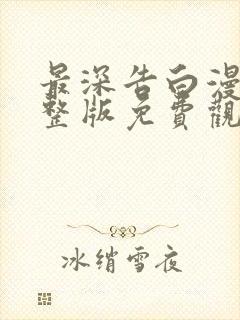 最深告白漫
整版免費觀
冰绡雪夜